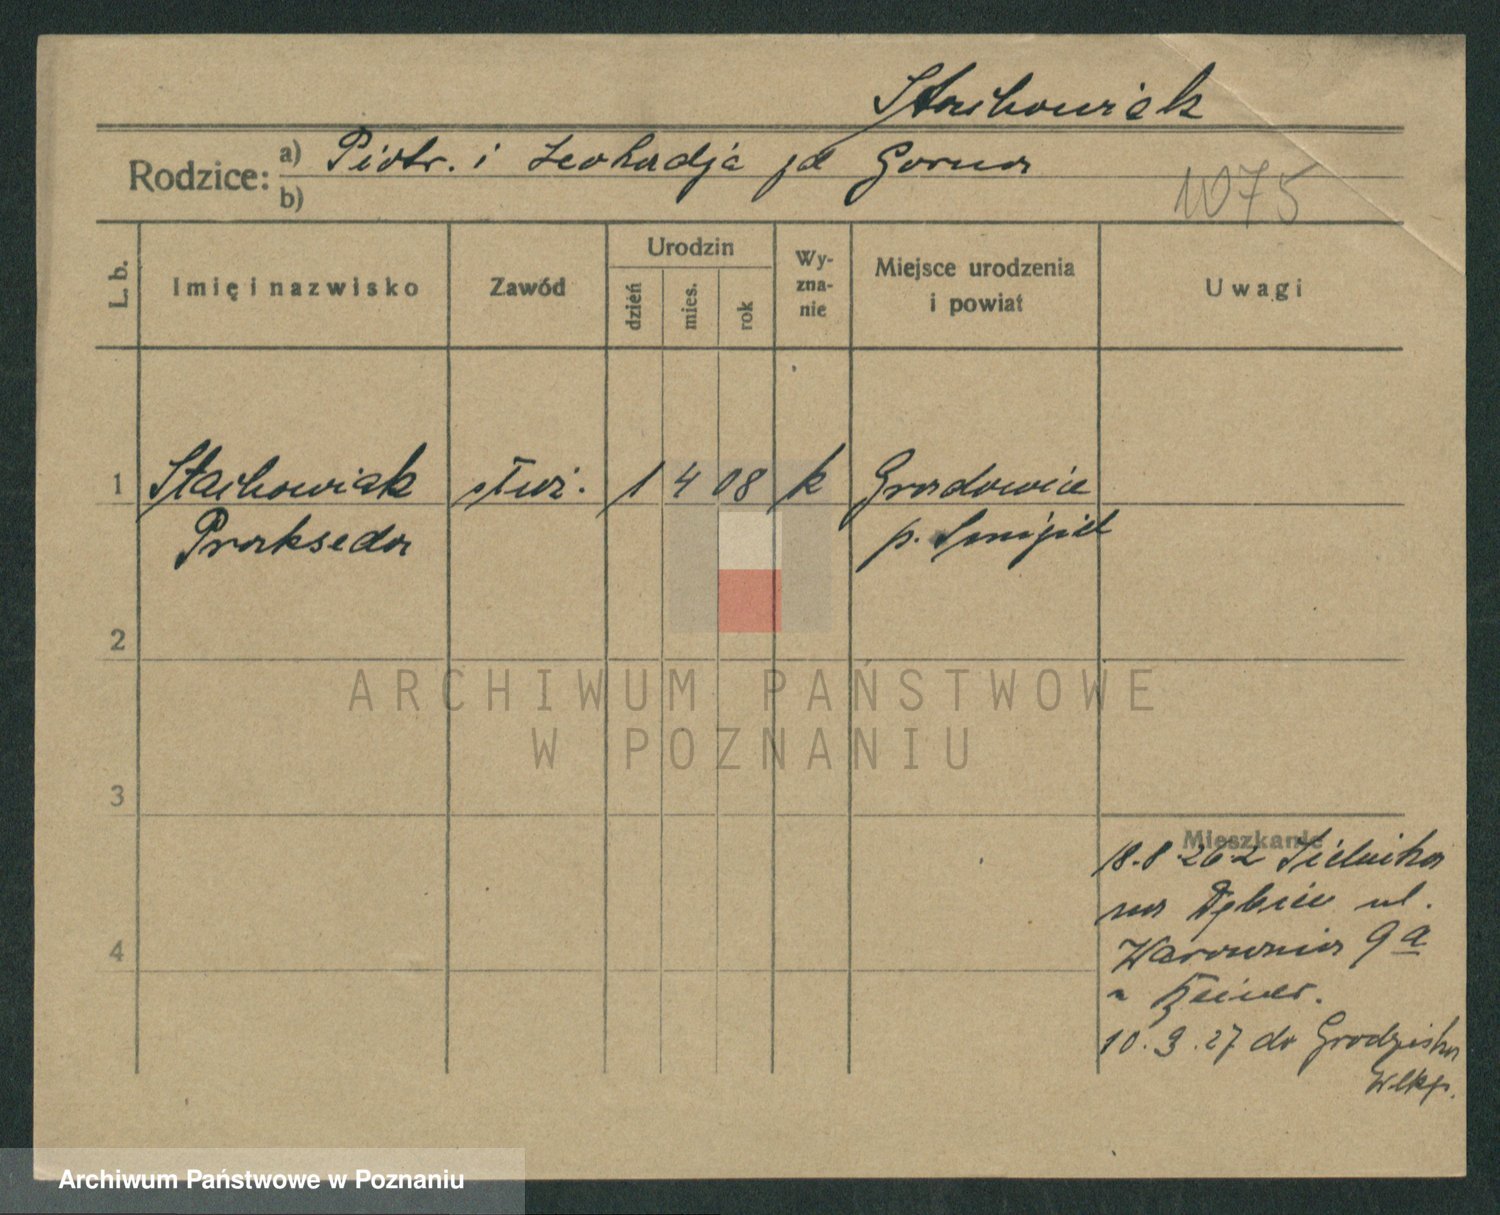 Stachowiak
Rodzice: a) Piotr. i Leokadja zd Gorna
b)
1075
L. b. Imię i nazwisko Zawód Urodzin dzień mies. rok Wyznanie Miejsce urodzenia i powiat Uwagi
1 Stachowiak służ. 1 4 08 k Grodowice
Prakseda p. Śmigiel
2
ARCHIWUM PAŃSTWOWE
W POZNANIU
3
Mieszkanie
18.8.26 z Sielnika
na Dębiec ul.
4
Warownia 9a
u
10.3.27 do Grodziska
Wlkp.
Archiwum Państwowe w Poznaniu